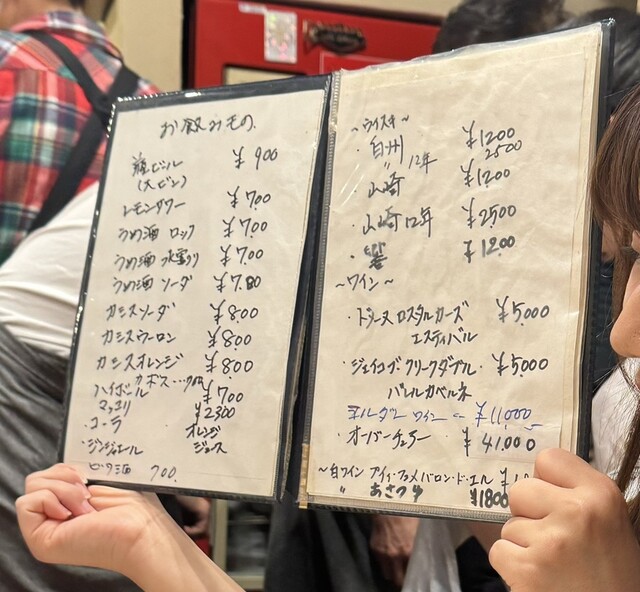 お飲みもの
瓶ビール ¥900
(大ビン)
レモンサワー ¥700
うめ酒 ロック ¥700
うめ酒 水割り ¥700
うめ酒 ソーダ ¥700
カシスソーダ ¥800
カシスウーロン ¥800
カシスオレンジ ¥800
ハイボール ¥700
マッコリ ¥2300
コーラ オレンジ
ジンジエール ジュース
700
~ウイスキー~
・白州 ¥1200
〃 12年 2500
・山崎 ¥1200
山崎12年 ¥2500
・響 ¥1200
~ワイン~
・ドゥーヌ ロスタル カーズ ¥5,000
エスティバル
・ジェイコブ・クリークダブル ¥5,000
バレルカベルネ
ワイン ¥11,000
・オーバーチュアー ¥41,000
~白ワイン
〃 ¥1800